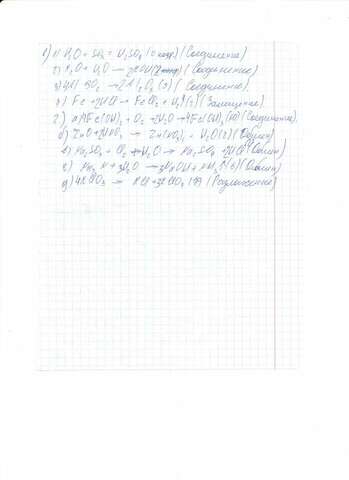 1) 1) H₂O + SO₃ = H₂SO₄ (Соединение)
2) K₂O + H₂O → 2KOH (Соединение)
3) → 2Al₂O₃ (Соединение)
Fe + 2HCl → FeCl₂ + H₂↑ (Замещение)
2) а) 4Fe(OH)₂ + O₂ + 2H₂O → 4Fe(OH)₃ (Соединение).
б) ZnO + 2HNO₃ → Zn(NO₃)₂ + H₂O (Обмен)
в) Na₂SO₃ + Cl₂ + H₂O → Na₂SO₄ + 2HCl (Обмен)
г) Na₃N + 3H₂O → 3NaOH + NH₃↑ (Обмен)
д) 4KClO₃ → KCl + 3KClO₄ (Разложение)